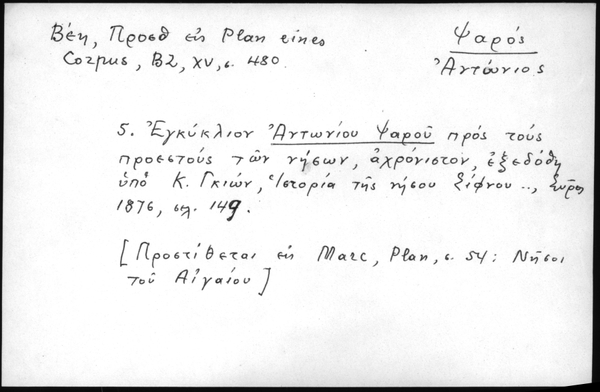 Βέη, Προσθ εἰς Plan eines
Corpus, BZ, XV, σ. 480.
Ψαρός
Ἀντώνιος
5. Ἐγκύκλιον Ἀντωνίου Ψαροῦ πρός τούς
προεστούς τῶν νήσων, ἀχρόνιστον, ἐξεδόθη
ὑπό Κ. Γκιών, Ἱστορία τῆς νήσου Σίφνου .., Σῦρος
1876, σελ. 149.
[Προστίθεται εἰς Marc, Plan, σ. 54: Νῆσοι
τοῦ Αἰγαίου]